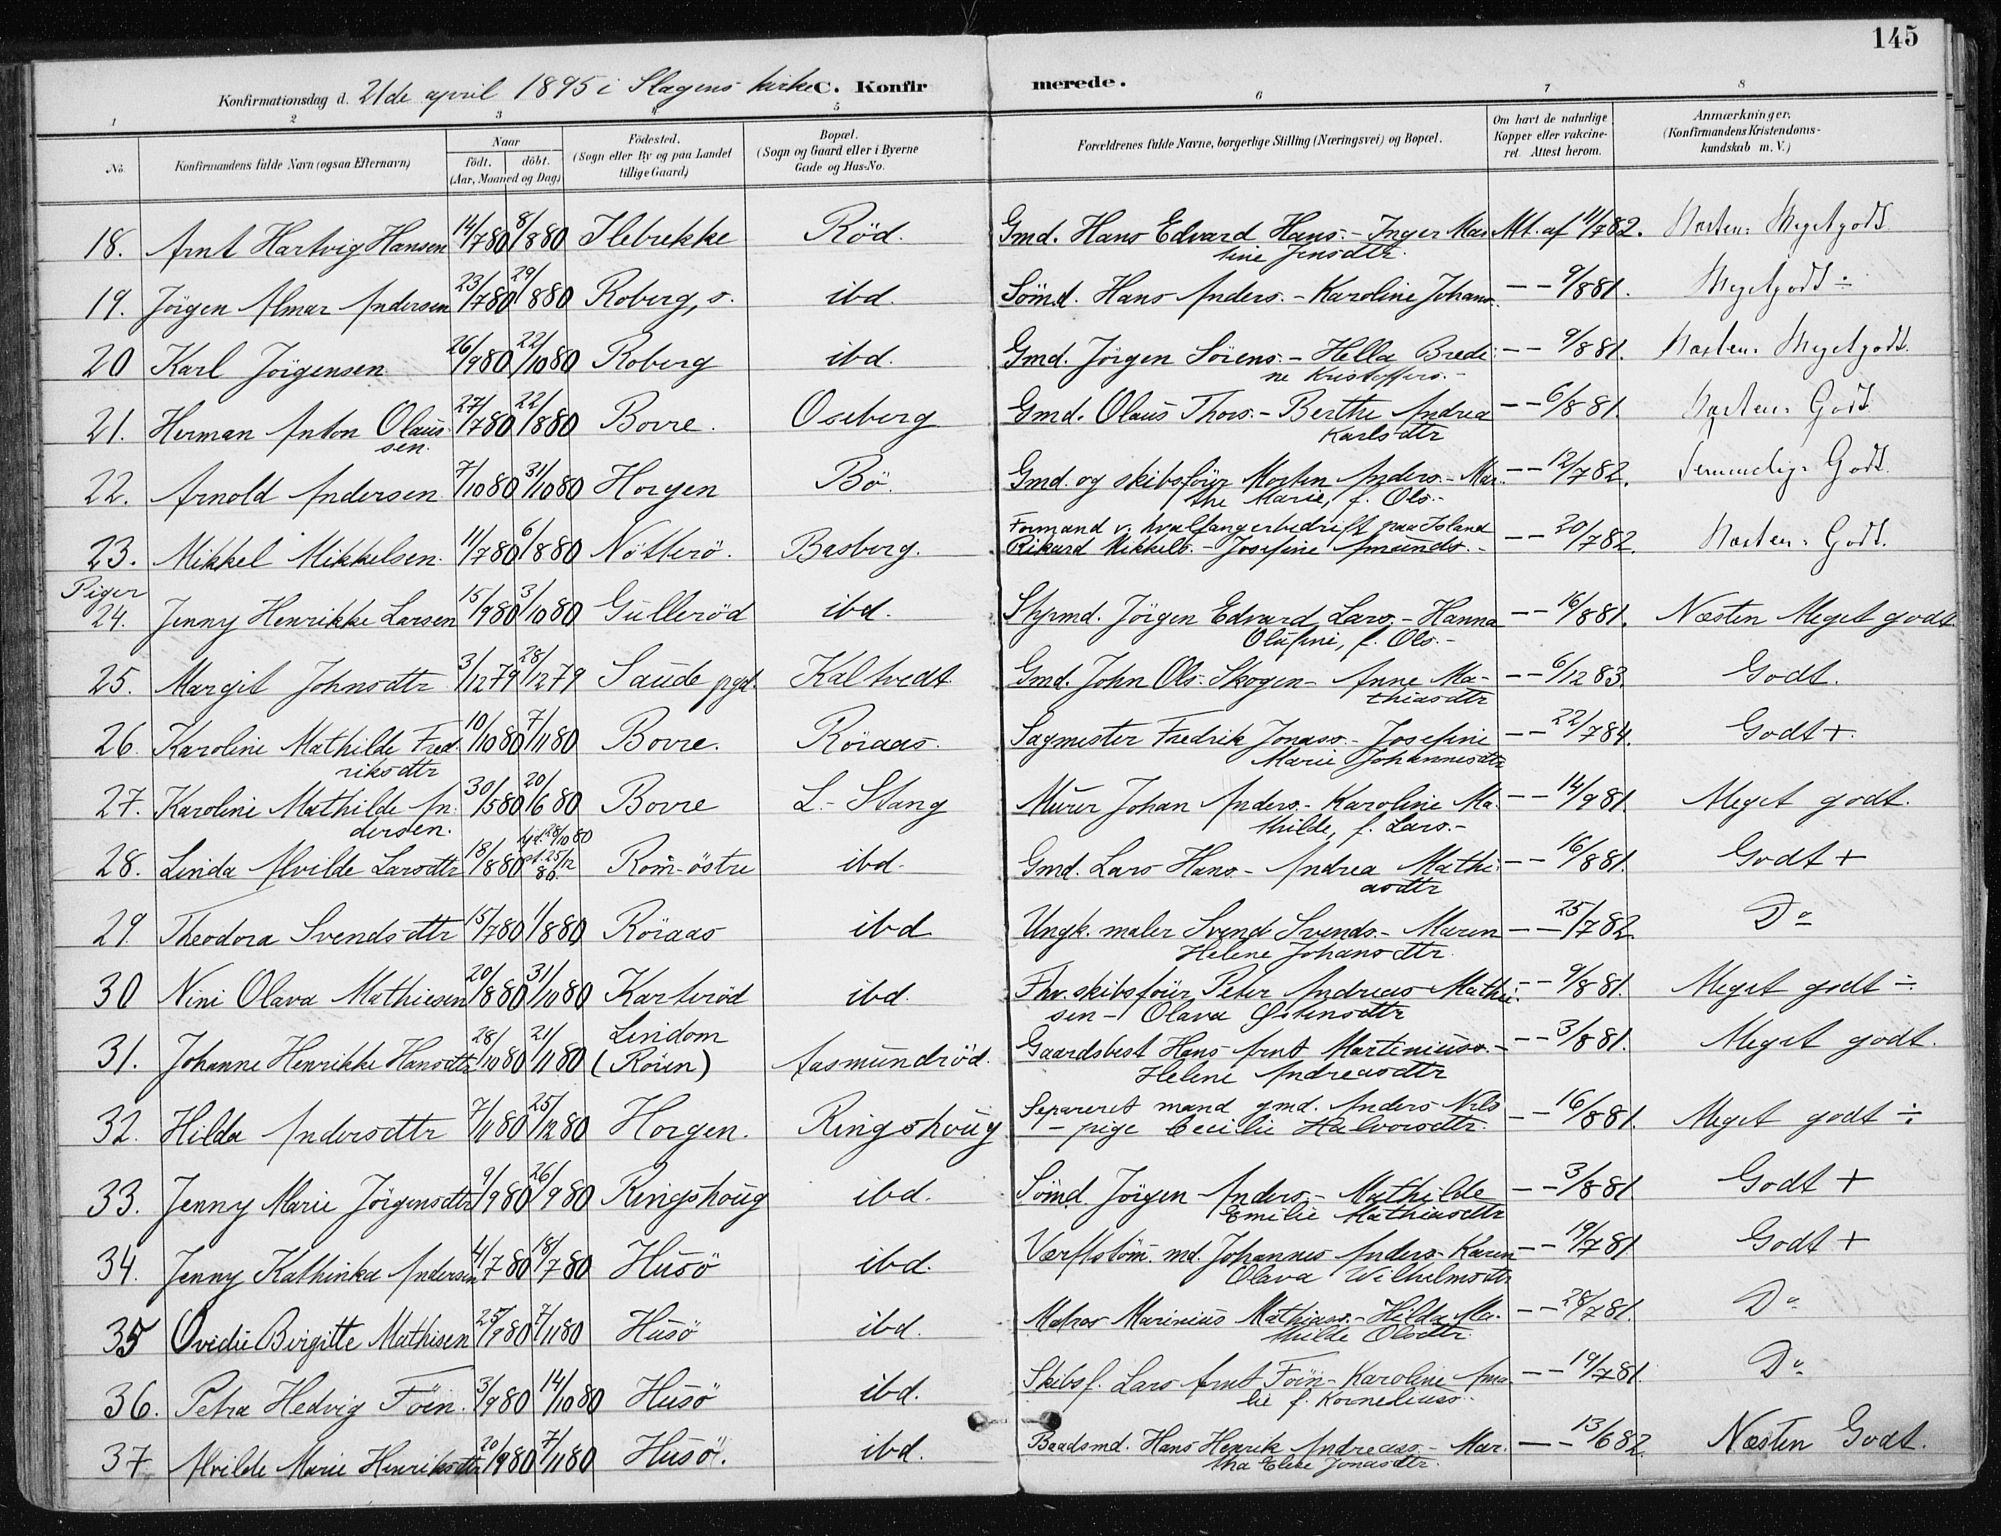 145
Konfirmationsdag d. 21de april 1895 i Slagens kirke C. Konfirmerede.
1 2 3 4 5 6 7 8
No. Konfirmandens fulde Navn (ogsaa Efternavn) Naar født. døbt. (Aar, Maaned og Dag) Fødested. (Sogn eller By og paa Landet tillige Gaard) Bopæl. (Sogn og Gaard eller i Byerne Gade og Hus-No. Forældrenes fulde Navne, borgerlige Stilling (Næringsvei) og Bopæl. Om havt de naturlige Kopper eller vakcineret. Attest herom. Anmærkninger. (Konfirmandens Kristendomskundskab m. V.)
18. Arnt Hartvig Hansen 14/7 80 8/8 80 Ilebrekke Röd. Gmd. Hans Edvard Hans.- Inger Mar
tine Jensdtr. At. af 11/7 82. Næsten Megetgodt
19. Jörgen Almar Andersen 23/7 80 29/8 80 Roberg, s. ibd. Sömd. Hans Anders.- Karoline Johans. - - 9/8 81. Megetgodt ÷
20 Karl Jörgensen 26/9 80 22/10 80 Roberg ibd. Gmd. Jörgen Sörens.- Hella Brede
ne Kristoffers.- - - 9/8 81. Næsten Megetgodt.
21. Herman Anton Olaus
sen. 27/7 80 22/8 80 Borre. Oseberg Gmd. Olaus Thors.- Berthe Andrea
Karlsdtr - - 6/8 81. Næsten Godt.
22. Arnold Andersen 7/10 80 31/10 80 Horgen Bö. Gmd. og skibsförer Morten Anders.- Mar
the Marie, f. Ols.- - - 12/7 82. Temmelig Godt.
23. Mikkel Mikkelsen. 11/7 80 6/8 80 Nötterö. Basberg. Formand v. hvalfangerbedrift paa Island
Rikard Mikkels.- Josefine Amunds.- - - 20/7 82. Næsten Godt.
Piger
24. Jenny Henrikke Larsen 15/9 80 3/10 80 Gulleröd ibd. Styrmd. Jörgen Edvard Lars.- Hanna
Olufine, f. Ols.- - - 16/8 81. Næsten Meget godt
25. Margit Johnsdtr 3/12 79 28/12 79 Saude pgd. Kaltvedt Gmd. John Ols. Skogen - Anne Ma-
thiasdtr - - 6/12 83. Godt.
26. Karoline Mathilde Fred
riksdtr 10/10 80 7/11 80 Borre. Röraas. Sagmester Fredrik Jonass.- Josefine
Marie Johannesdtr - - 22/7 84. Godt +.
27. Karoline Mathilde An
dersen. 30/5 80 20/6 80 Borre L.- Stang Murer Johan Anders.- Karoline Ma-
thilde, f. Lars.- - - 14/9 81. Meget godt.
28. Linda Alvilde Larsdtr 18/8 80 hjd. 28/10 80
st. 25/12
80. Rom-östre ibd. Gmd. Lars Hans.- Andrea Mathi
asdtr - - 16/8 81. Godt +
29. Theodora Svendsdtr 15/7 80 1/8 80 Röraas ibd Ungk. maler Svend Svends.- Maren
Helene Johansdtr. - - 25/7 82. Do
30 Nini Olava Mathiesen 20/8 80 31/10 80 Karteröd ibd. Fhv. skibsförer Peter Andreas Mathi
sen - Olava Østensdtr - 9/8 81. Meget godt ÷
31. Johanne Henrikke Hansdtr 28/10 80 21/11 80 Lindom
(Rören) Aasmundröd. Gaardsbest Hans Arnt Martiniuss.-
Helene Andreasdtr - - 3/8 81. Meget godt.
32. Hilda Andersdtr 7/11 80 25/12 80 Horgen. Ringshoug Separeret mand gmd. Anders Nils
- pige Cecilie Halvorsdtr. - - 16/8 81. Meget godt ÷
33. Jenny Marie Jörgensdtr 9/9 80 26/9 80 Ringshoug ibd. Sömd Jörgen Anders.- Mathilde
Emilie Mathiasdtr - - 3/8 81 Godt +
34. Jenny Kathinka Andersen 4/7 80 18/7 80 Husö ibd. Værftstöm. md. Johannes Anders- Karen
Olava Wilhelmsdtr - - 19/7 81 Godt +
35 Ovidie Birgitte Mathisen 25/9 80 7/11 80 Husö ibd. Matros Marinius Mathiass.- Hilda Ma-
thilde Olsdtr. - - 28/7 81. Do
36. Petra Hedvig Föien. 3/9 80 14/10 80 Husö ibd. Skibsf. Lars Arnt Föin- Karoline Ama
lie f. Korneliuss.- - - 19/7 81. Do
37 Alvilde Marie Henriksdtr 20/9 80 7/11 80 Husö. ibd. Baadsmd. Hans Henrik Andreass.- Mar.
tha Elise Jonasdtr. - - 13/6 82 Næsten Godt.